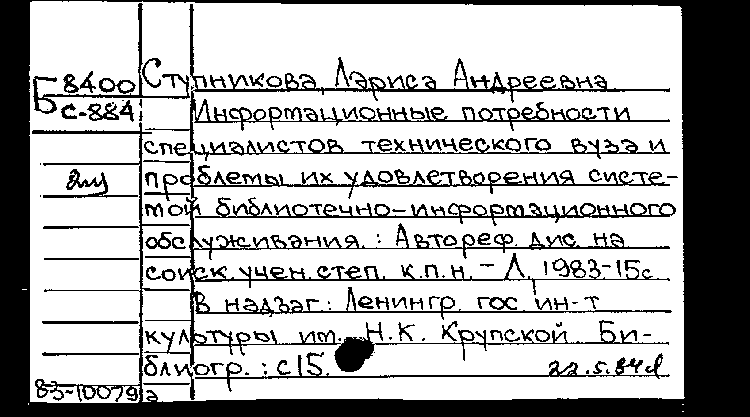 Б 8400
С-884
Ступникова, Лариса Андреевна
Информационные потребности
специалистов технического вуза и
проблемы их удовлетворения систе-
мой библиотечно-информационного
обслуживания.: Автореф. дис. на
соиск. учен. степ. к.п.н. - Л., 1983-15с.
В надзаг.: Ленингр. гос. ин-т
культуры им. Н.К. Крупской. Би-
блиогр.: с15.
22.5.84
83-10079а